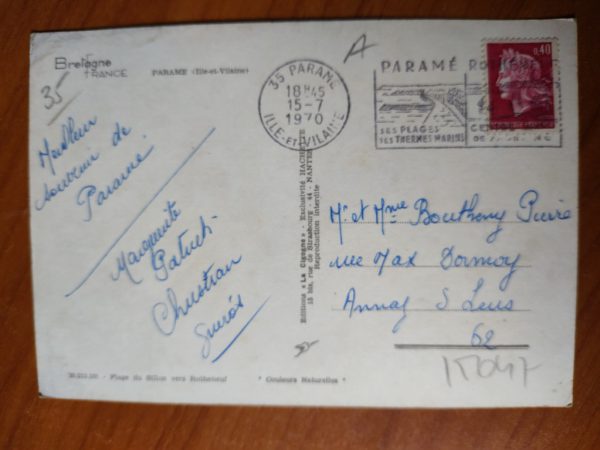 Bretagne
FRANCE
PARAMÉ (Ille-et-Vilaine)
35
Meilleur
souvenir de
Paramé
Marguerite
Patrick
Christian
35 PARAMÉ
18H45
15-7
1970
ILLE-ET-VILAINE
A
PARAMÉ
SES PLAGES
SES THERMES MARINS
0,40
Editions « La Cigogne » - Exclusivité HACHETTE
15 bis, rue de Strasbourg - 44 - NANTES
Reproduction interdite
Mr et Mme Bouthemy Pierre
rue Max Dormoy
Annay S Lens
62
Plage du Sillon vers Rothéneuf
" Couleurs Naturelles "